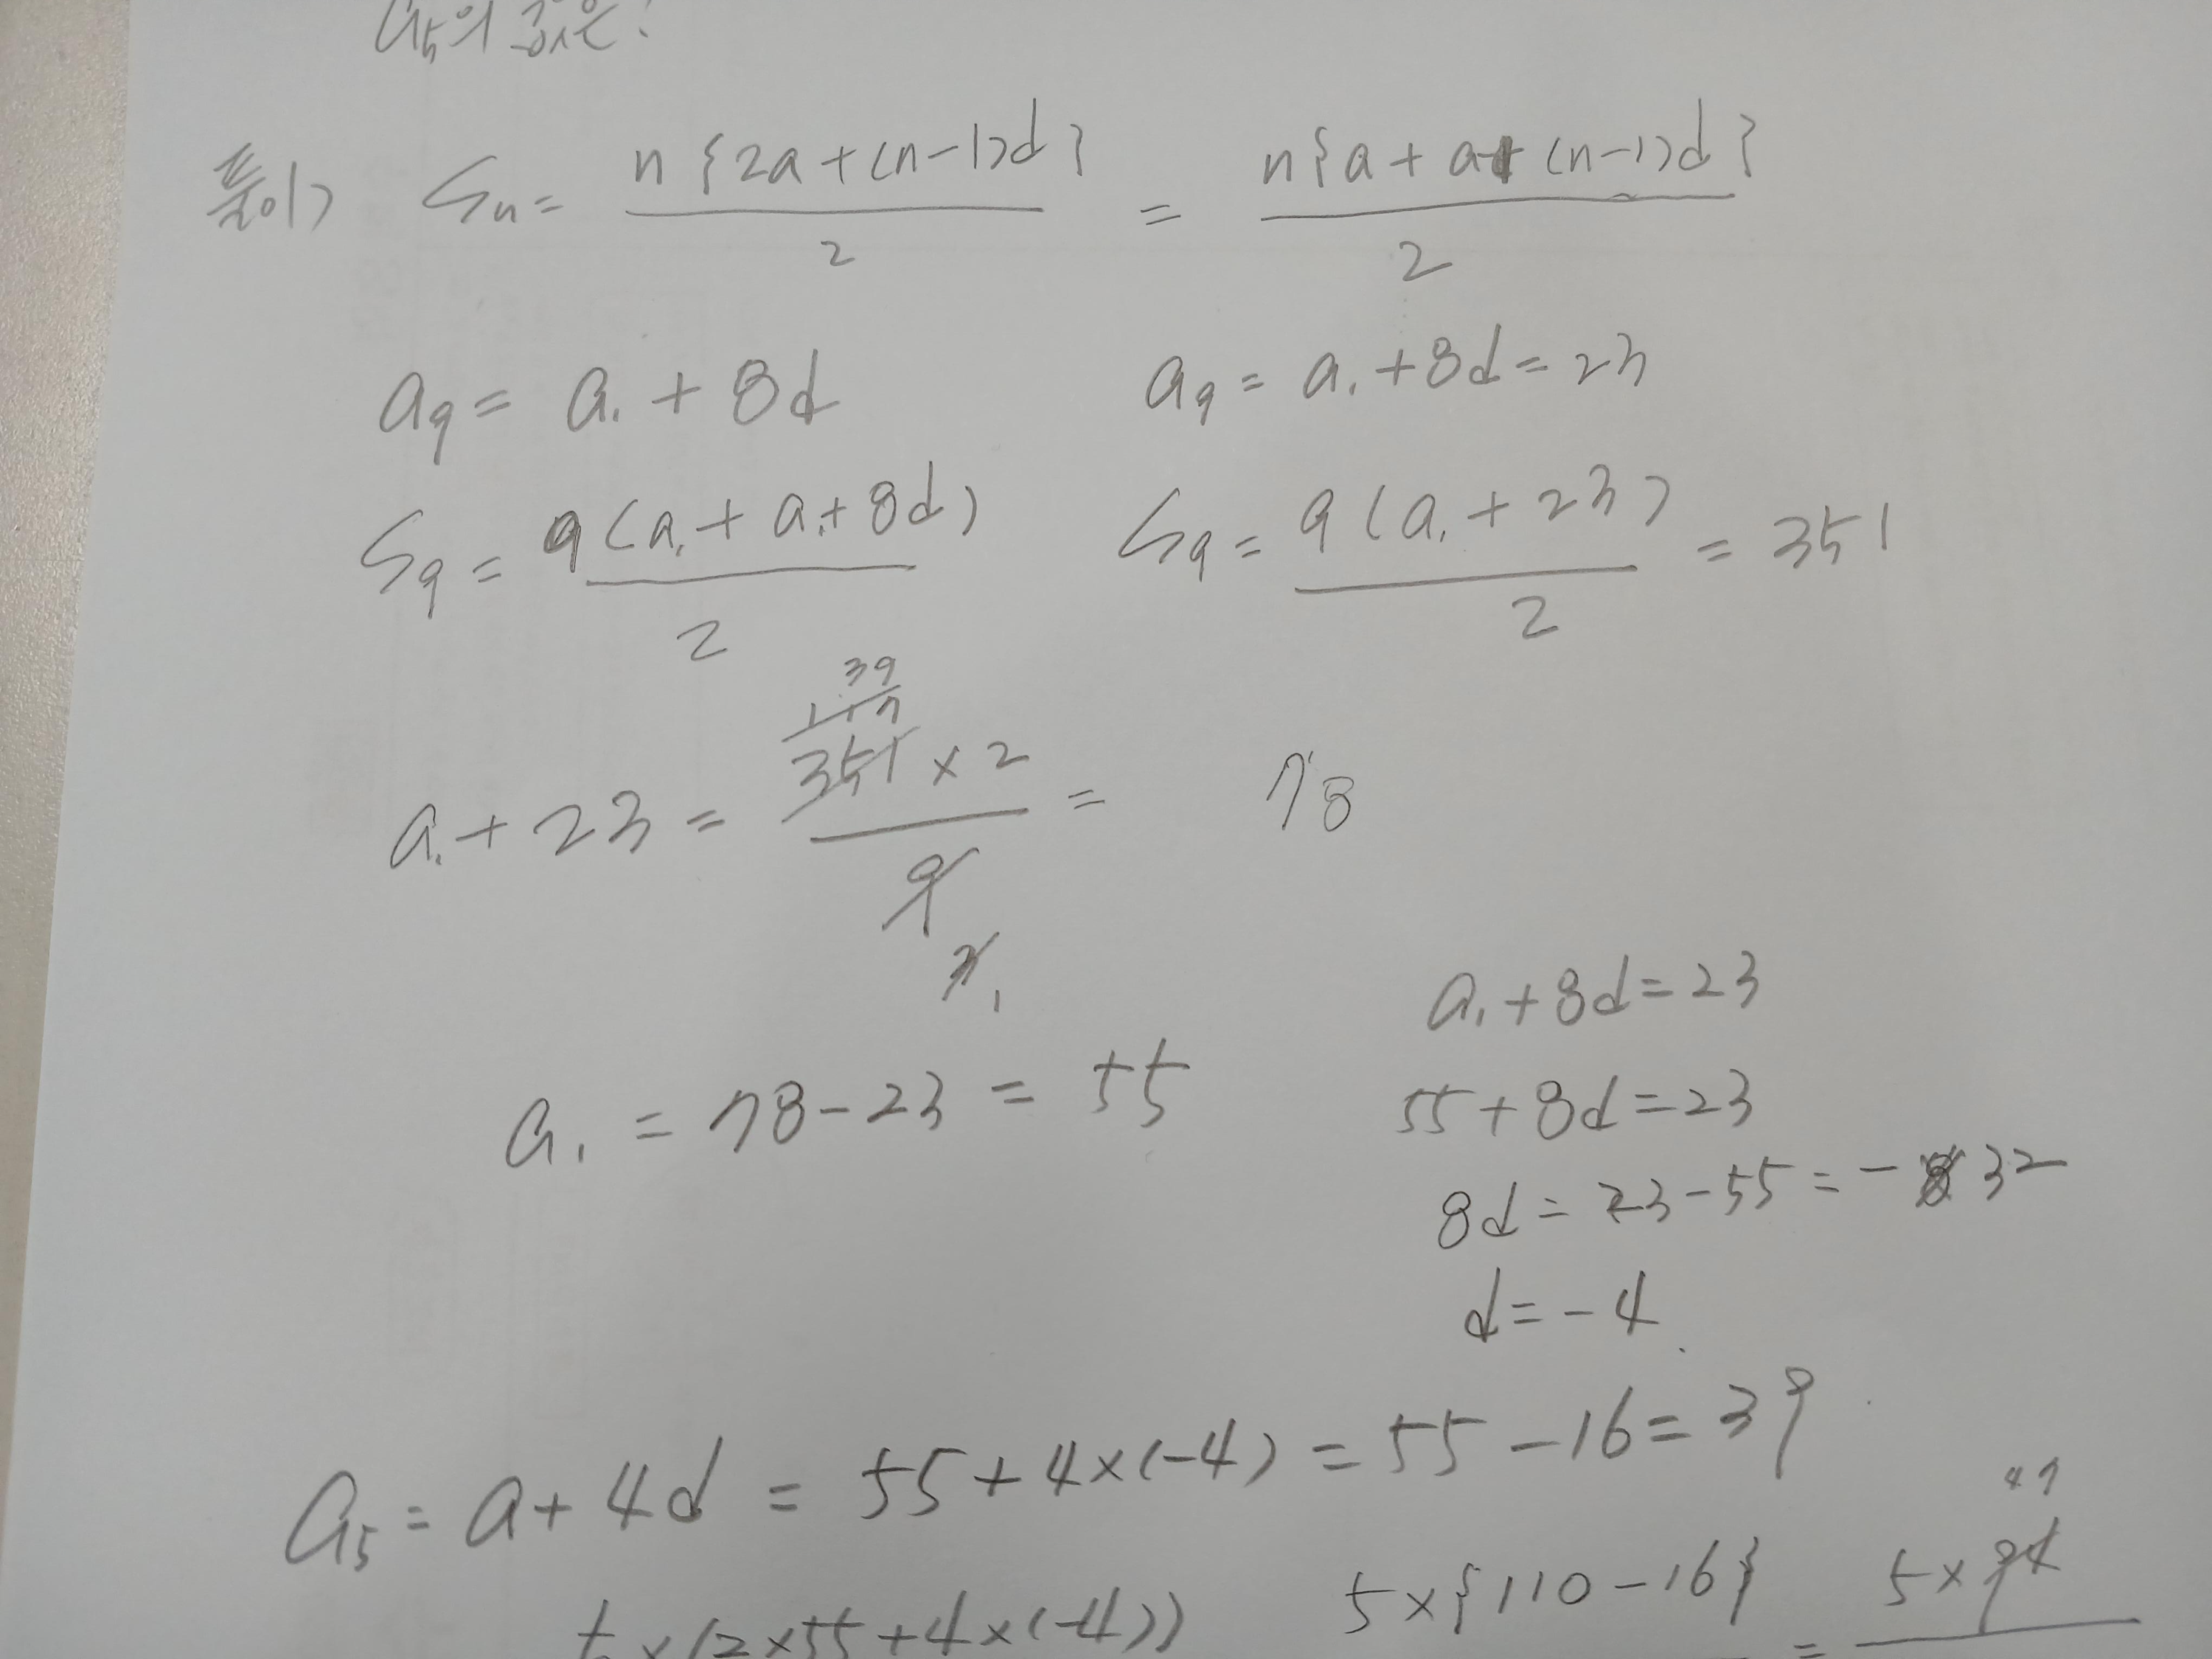 a5의 값은?
풀이) Sn = n{2a+(n-1)d} / 2 = n{a+a+(n-1)d} / 2
a9 = a1 + 8d
a9 = a1 + 8d = 23
S9 = 9(a1 + a1 + 8d) / 2
S9 = 9(a1 + 23) / 2 = 351
39
117
a1 + 23 = 351 × 2 / 9 = 78
3 1
a1 + 8d = 23
a1 = 78 - 23 = 55
55 + 8d = 23
8d = 23 - 55 = - 32
d = - 4
a5 = a + 4d = 55 + 4×(-4) = 55 - 16 = 39
47
5×(2×55+4×(-4)) 5×{110-16} = 5×94